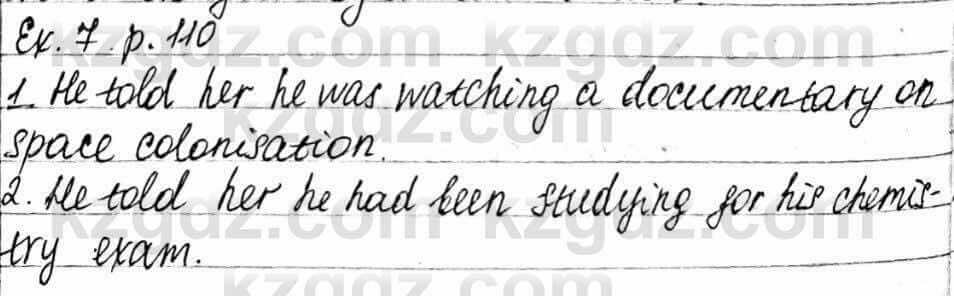 Ex. 7 p. 110
1. He told her he was watching a documentary on
space colonisation.
2. He told her he had been studying for his chemis-
try exam.
kzgdz.com kzgdz.com kzgdz.com
kzgdz.com
kzgdz.com kzgdz.com kzgdz.com